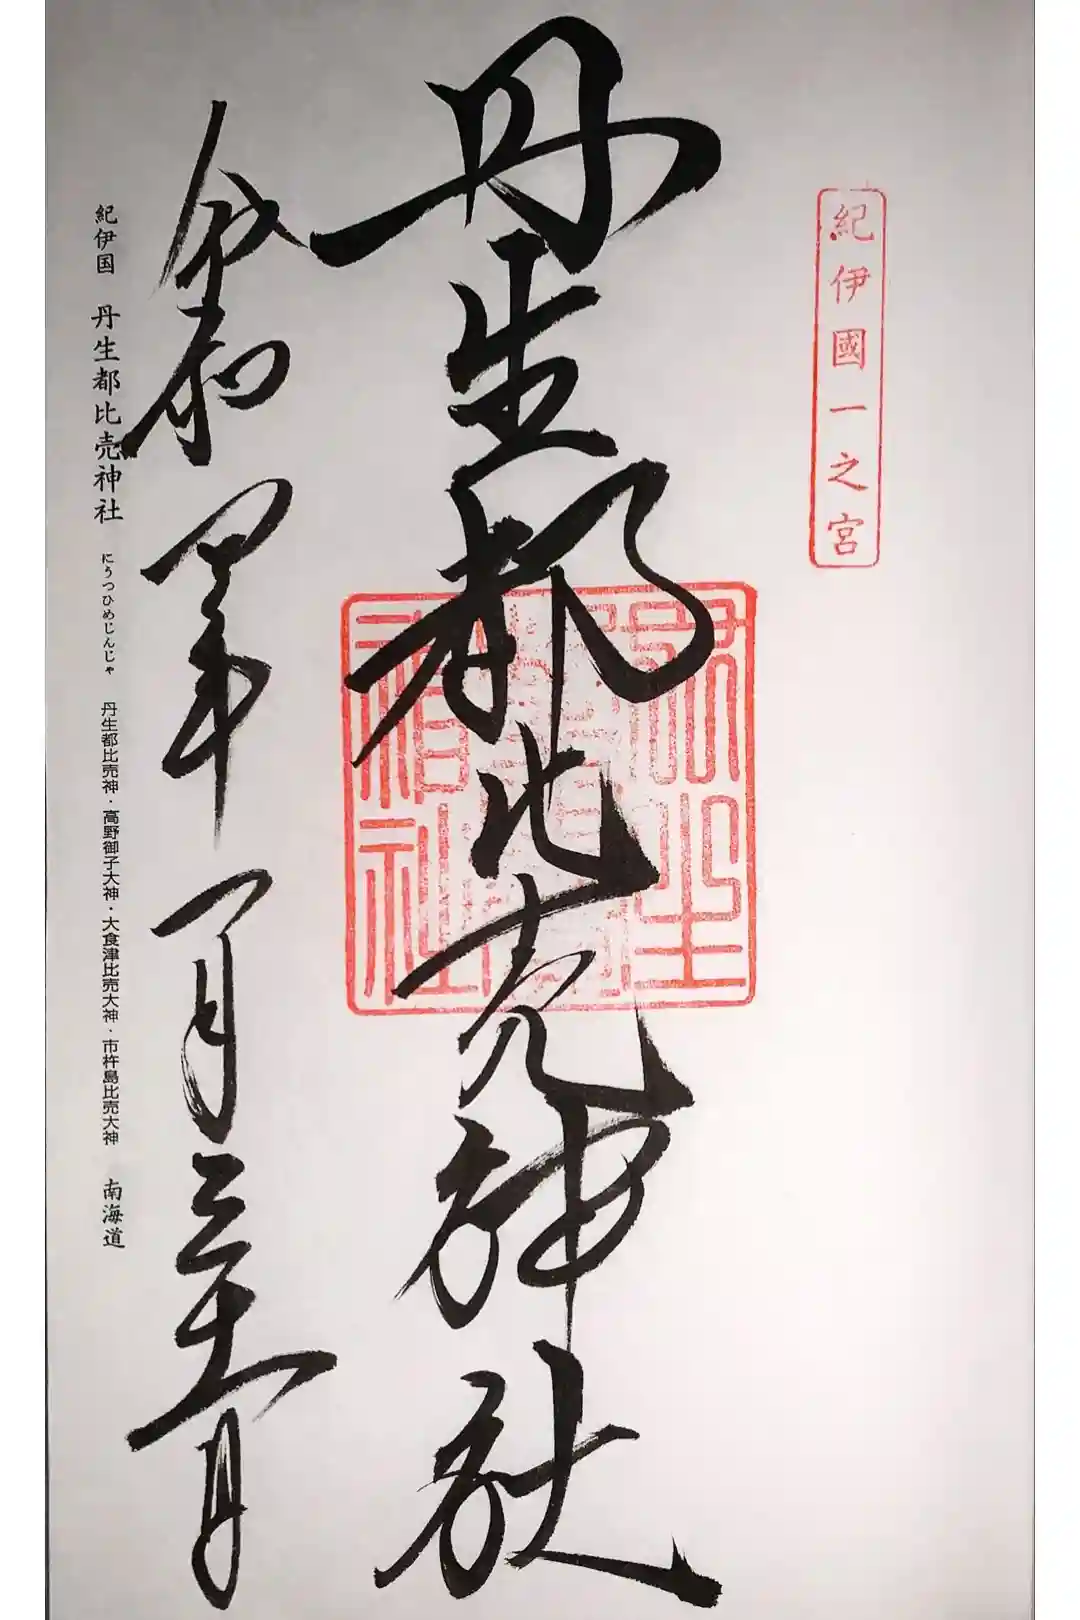 紀伊國一之宮
丹生都比売神社
令和四年一月三十一日
紀伊国 丹生都比売神社 にうつひめじんじゃ 丹生都比売神・高野御子大神・大食津比売大神・市杵島比売大神 南海道